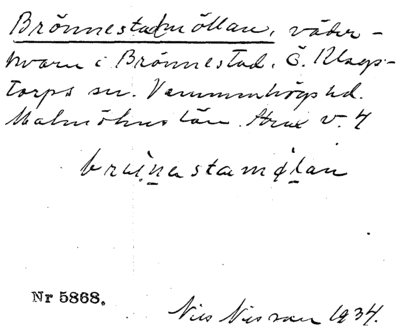 Brönnestadmöllan, väder-
kvarn i Brönnestad, Ö. Klags-
torps sn. Vemmenhögs hd.
Malmöhus län. Arax v. 4
bräinastamølan
Nr 5868.
Nils Nilsson 1934.